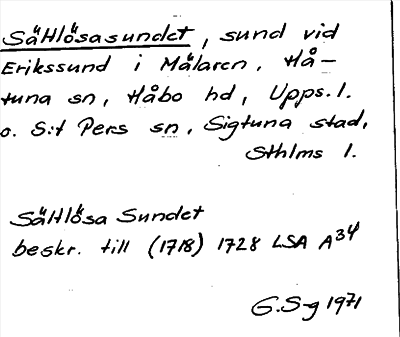 Sättlösasundet, sund vid
Erikssund i Mälaren, Hå-
tuna sn, Håbo hd, Upps. l.
o. S:t Pers sn, Sigtuna stad,
Sthlms l.
Sättlösa Sundet
beskr. till (1718) 1728 LSA A34
G.S-g 1971